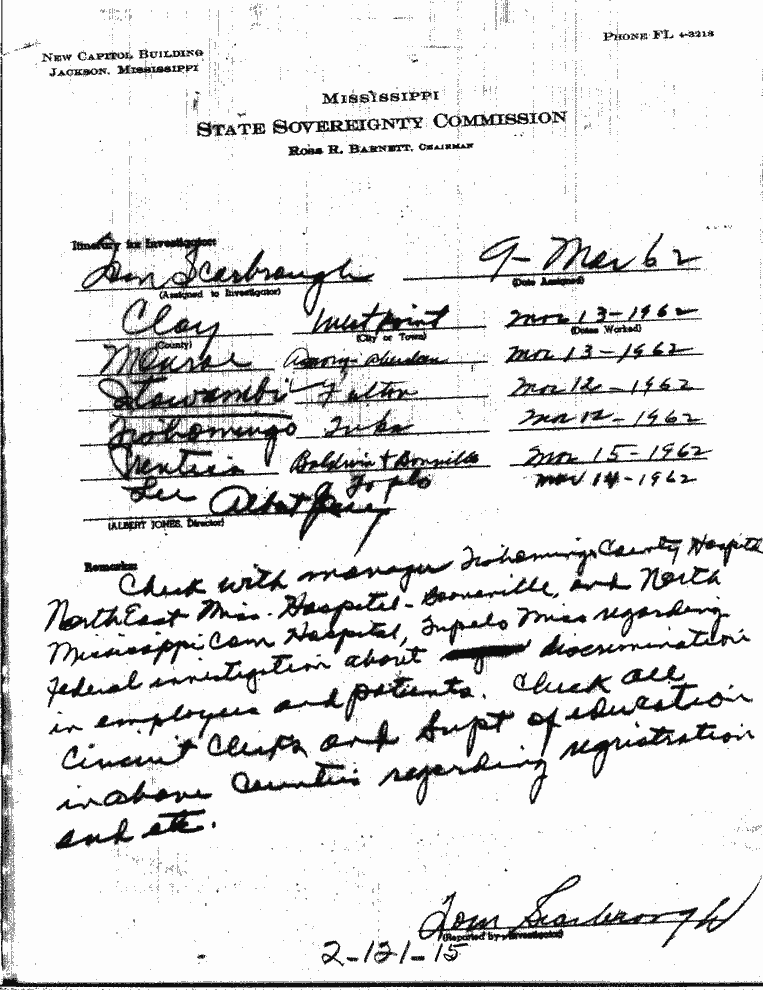 NEW CAPITOL BUILDING
JACKSON, MISSISSIPPI
PHONE FL 4-3218
MISSISSIPPI
STATE SOVEREIGNTY COMMISSION
ROSS R. BARNETT, CHAIRMAN
Itinerary for Investigator:
Tom Scarbrough 9- Mar 62
(Assigned to Investigator) (Date Assigned)
Clay West Point Mar 13-1962
(County) (City or Town) (Dates Worked)
Monroe Amory- Aberdeen Mar 13-1962
Itawambi Fulton Mar 12-1962
Tishomingo Iuka Mar 12-1962
Prentiss Baldwin + Booneville Mar 15-1962
Lee Tuplo Mar 14-1962
Albert Jones
(ALBERT JONES, Director)
Remarks:
Check with manager Tishomingo County Hospital
NorthEast Miss. Hospital- Booneville, and North
Mississippi Com Hospital, Tupelo Miss regarding
Federal investigation about discrimination
in employees and patients. Check all
Circuit Clerks and Supt of education
in above Counties regarding registration
and etc.
Tom Scarbrough
(Reported by Investigator)
2-121-15